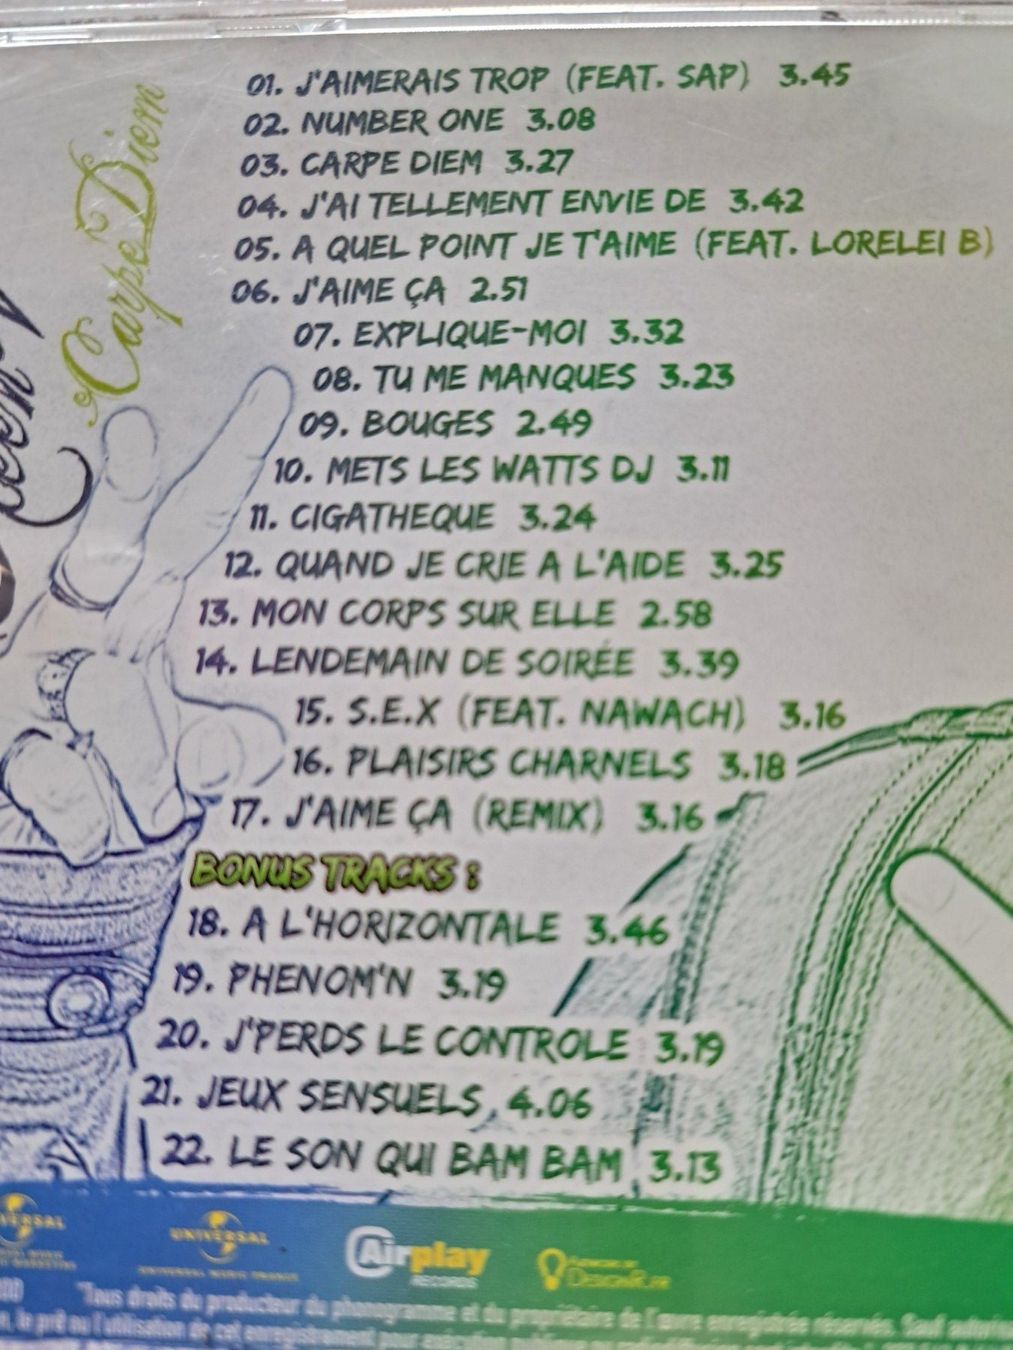 01. J'AIMERAIS TROP (FEAT. SAP) 3.45
02. NUMBER ONE 3.08
03. CARPE DIEM 3.27
04. J'AI TELLEMENT ENVIE DE 3.42
05. A QUEL POINT JE T'AIME (FEAT. LORELEI B)
06. J'AIME ÇA 2.51
07. EXPLIQUE-MOI 3.32
08. TU ME MANQUES 3.23
09. BOUGES 2.49
10. METS LES WATTS DJ 3.11
11. CIGATHEQUE 3.24
12. QUAND JE CRIE A L'AIDE 3.25
13. MON CORPS SUR ELLE 2.58
14. LENDEMAIN DE SOIRÉE 3.39
15. S.E.X (FEAT. NAWACH) 3.16
16. PLAISIRS CHARNELS 3.18
17. J'AIME ÇA (REMIX) 3.16
BONUS TRACKS :
18. A L'HORIZONTALE 3.46
19. PHENOM'N 3.19
20. J'PERDS LE CONTROLE 3.19
21. JEUX SENSUELS 4.06
22. LE SON QUI BAM BAM 3.13
Carpe Diem
UNIVERSAL
UNIVERSAL MUSIC FRANCE
Airplay
RECORDS
"Tous droits du producteur du phonogramme et du propriétaire de l'œuvre enregistrée réservés. Sauf
le prêt ou l'utilisation de cet enregistrement pour